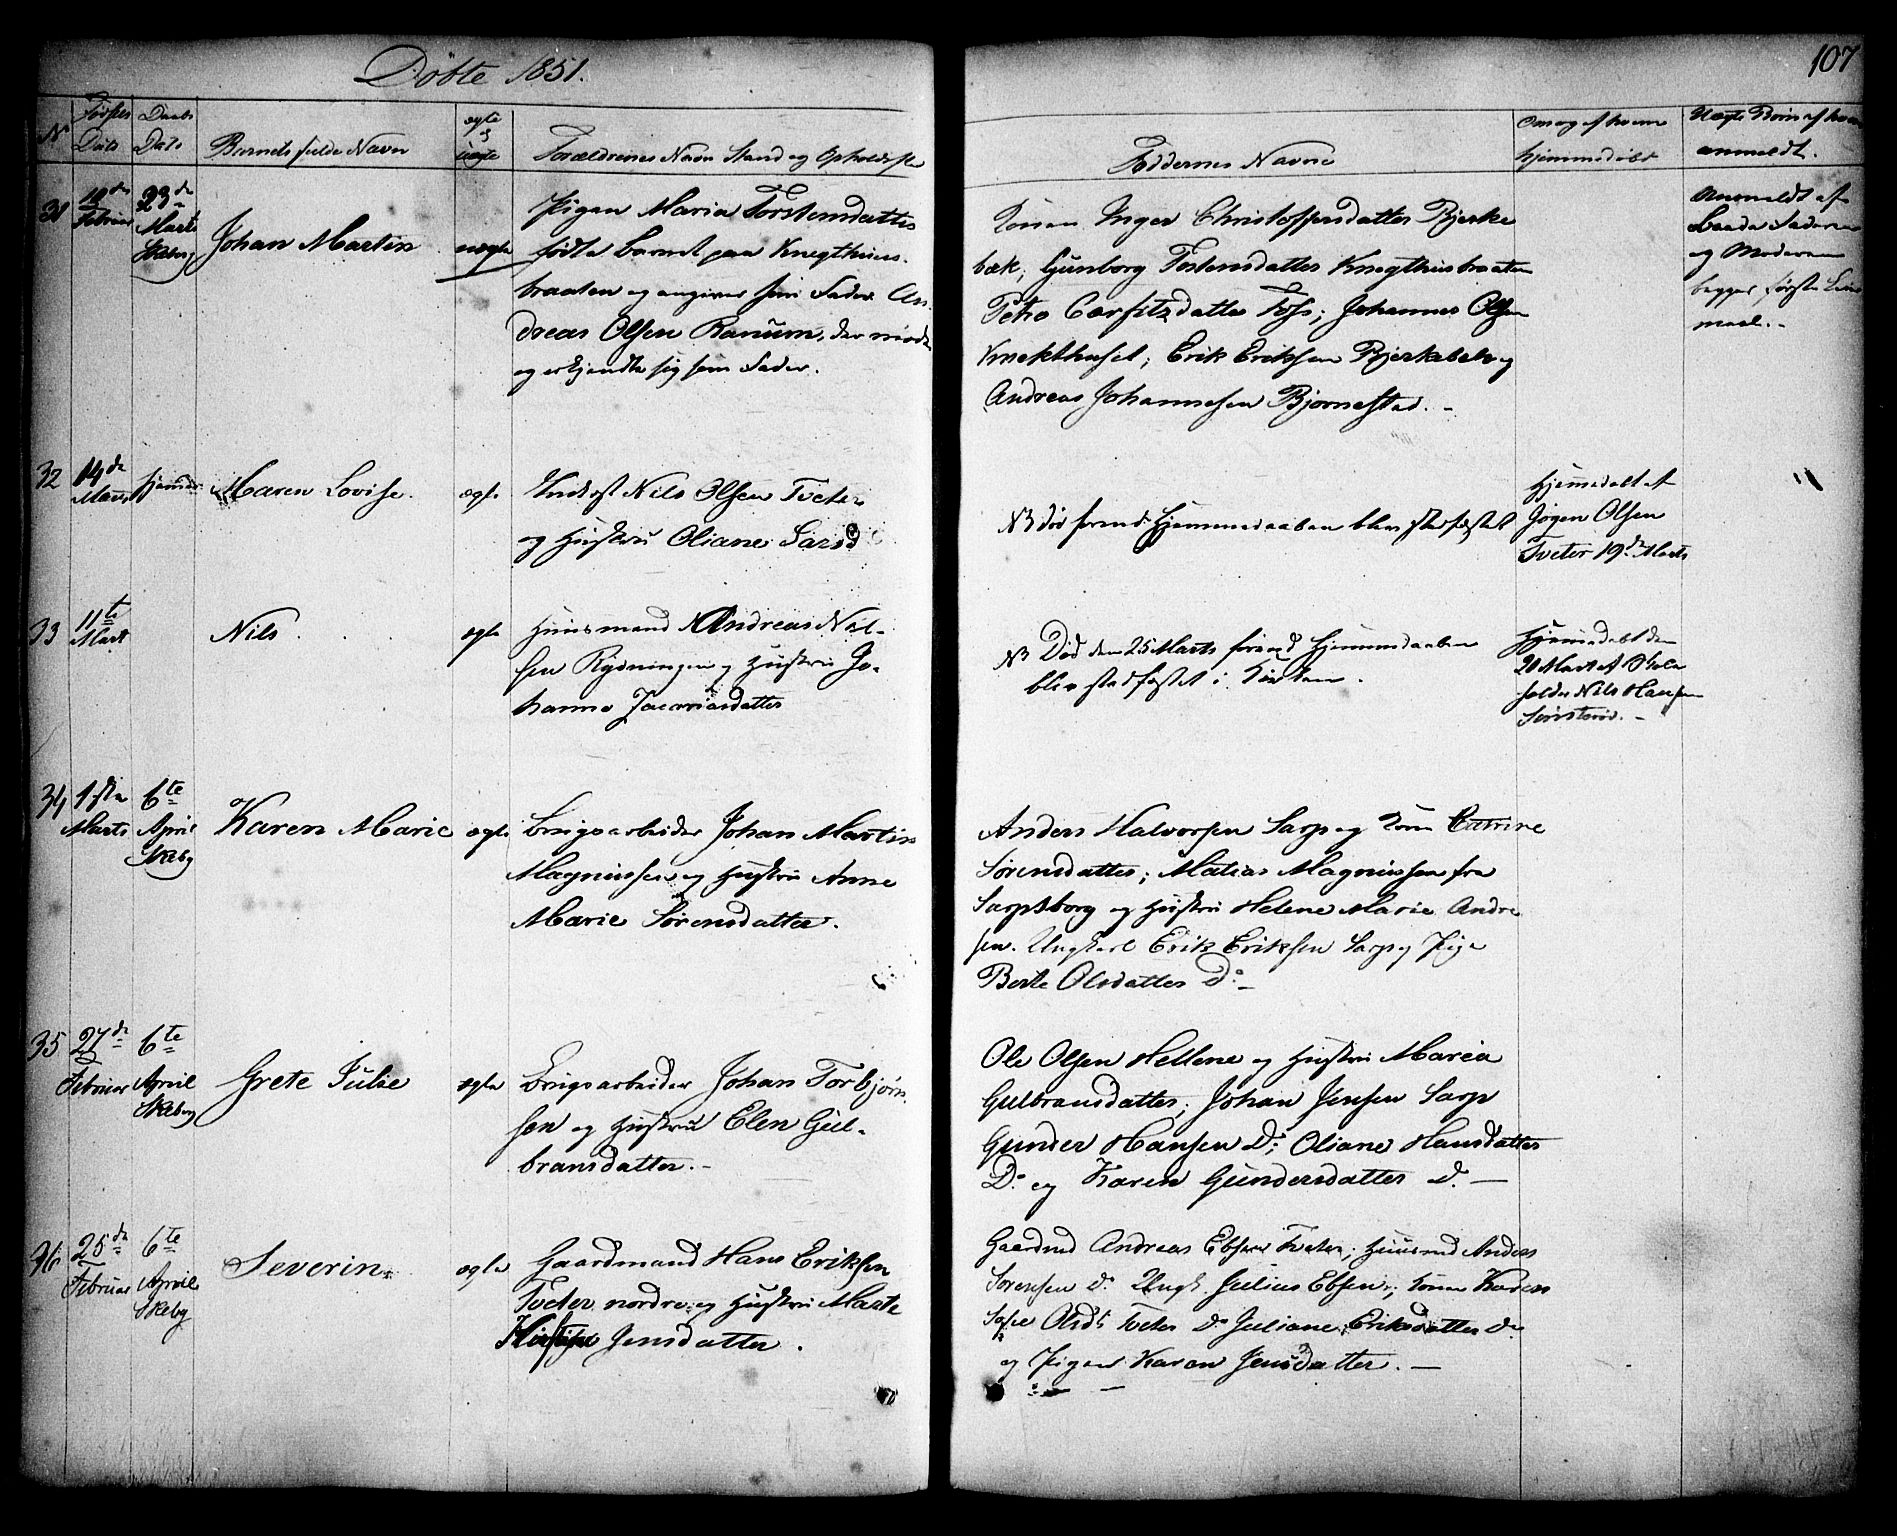 Döbte 1851.
107
No
Födsels
Dato
Daabs
Dato
Barnets fulde Navn
ægte
og
uægte
Forældrenes Navn Stand og Opholdsst
Faddernes Navne
Om og af hvem
hjemmedøbt
Uægte Børn af hvem
anmeldt.
31
18de
Februar
23de
Marts
Skeberg
Johan Martin
uægte
Pigen Maria Torstensdatter
fødte Barnet paa Knegthuus-
braaten og angiver som Fader An-
dreas Olsen Ranum, der mødte
og erkjendte sig som Fader.
Konen Inger Christophersdatter Bjerke
bæk; Gunborg Tostensdatter Knegthusbraaten
Johannes Olsen
Erik Eriksen Bjerkebek og
Andreas Johannesen Bjørnestad. -
Anmeldt af
baade Faderen
og Moderen
begges første Leier
maal. -
32
14de
Marts
hjemmed
Maren Lovise.
ægte
Nils Olsen Tveter
og Hustru Oliane Larsd
NB død forend Hjemmedaaben blev stadfæstet
Hjemmedøbt af
Jørgen Olsen
Tveter 19de Marts
33
11te
Mart
Nils.
ægte
Huusmand Andreas Niel-
sen Rydningen og Hustru Jo-
hanne Zacariasdatter
NB Død den 25 Marts forend Hjemmedaaben
blev stadfæstet i Kirken.
Hjemmedøbt den
20 Mart af Skole
holder Nils Hansen
34
1ste
Marts
6te
April
Skeberg
Karen Marie
ægte
Brugsarbeider Johan Martin
Magnussen og Hustru Anne
Marie Sørensdatter.
Anders Halvorsen Sarp og Kone Catrine
Sørensdatter; Matias Magnussen fra
Sarpsborg og Hustru Helene Marie Andre
sen. Ungkarl Erik Eriksen Sarp og Pige
Berte Olsdatter Do -
35
27de
Februar
6te
April
Skeberg
Grete Julie
ægte
Brugsarbeider Johan Torbjørn
sen og Hustru Elen Gul-
bransdatter. -
Ole Olsen Hellene og Hustru Maria
Gulbransdatter; Johan Jensen Sarp
Gunder Hansen Do; Oliane Hansdatter
Do og Karen Gundersdatter D. -
36
25de
Februar
6te
April
Skeberg
Severin
ægte
Gaardmand Hans Eriksen
Tveter nordre og Hustru Marte
Jensdatter.
Gaardmd Andreas Ebsen Tveter; Huusmd Anders
Sørensen Do Ungk. Julius Ebsen; Konen Karen
Sofie Olsdt Tveter Do Juliane Eriksdatter Do
og Pigen Karen Jensdatter. -